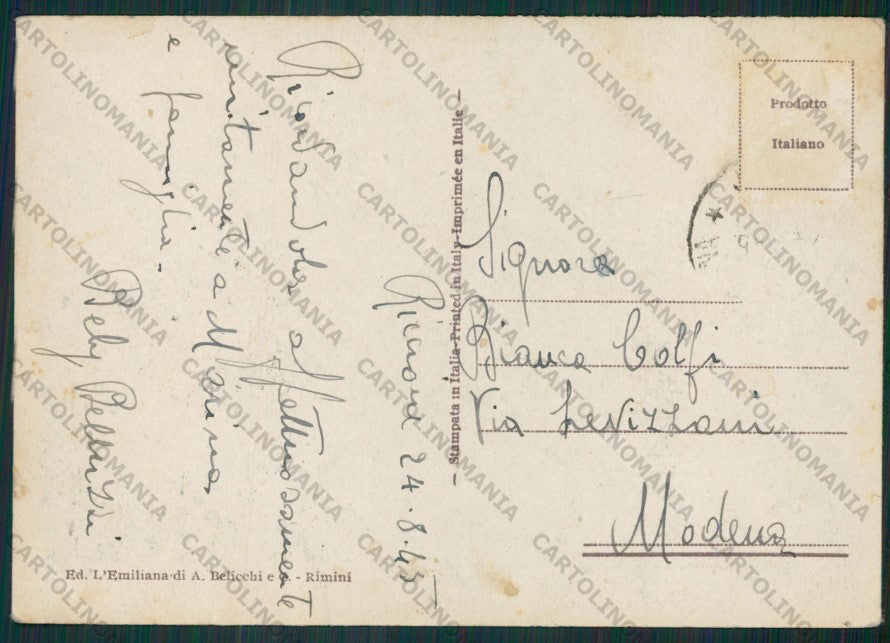 Riccione 24.8.45
Ricordandola affettuosamente
unitamente a Marina,
e famiglia.
Beby Bellizzi
Stampata in Italia-Printed in Italy-Imprimée en Italie
Prodotto
Italiano
Signora
Bianca Golfi
Via Levizzani
Modena
Ed. L'Emiliana di A. Belicchi e - Rimini
CARTOLINOMANIA